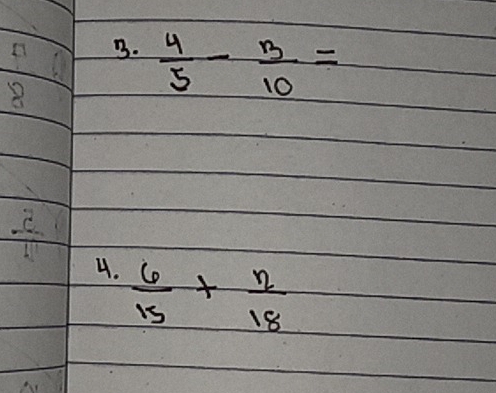 3. 4/5 - 3/10 =
4. 6/15 + 2/18